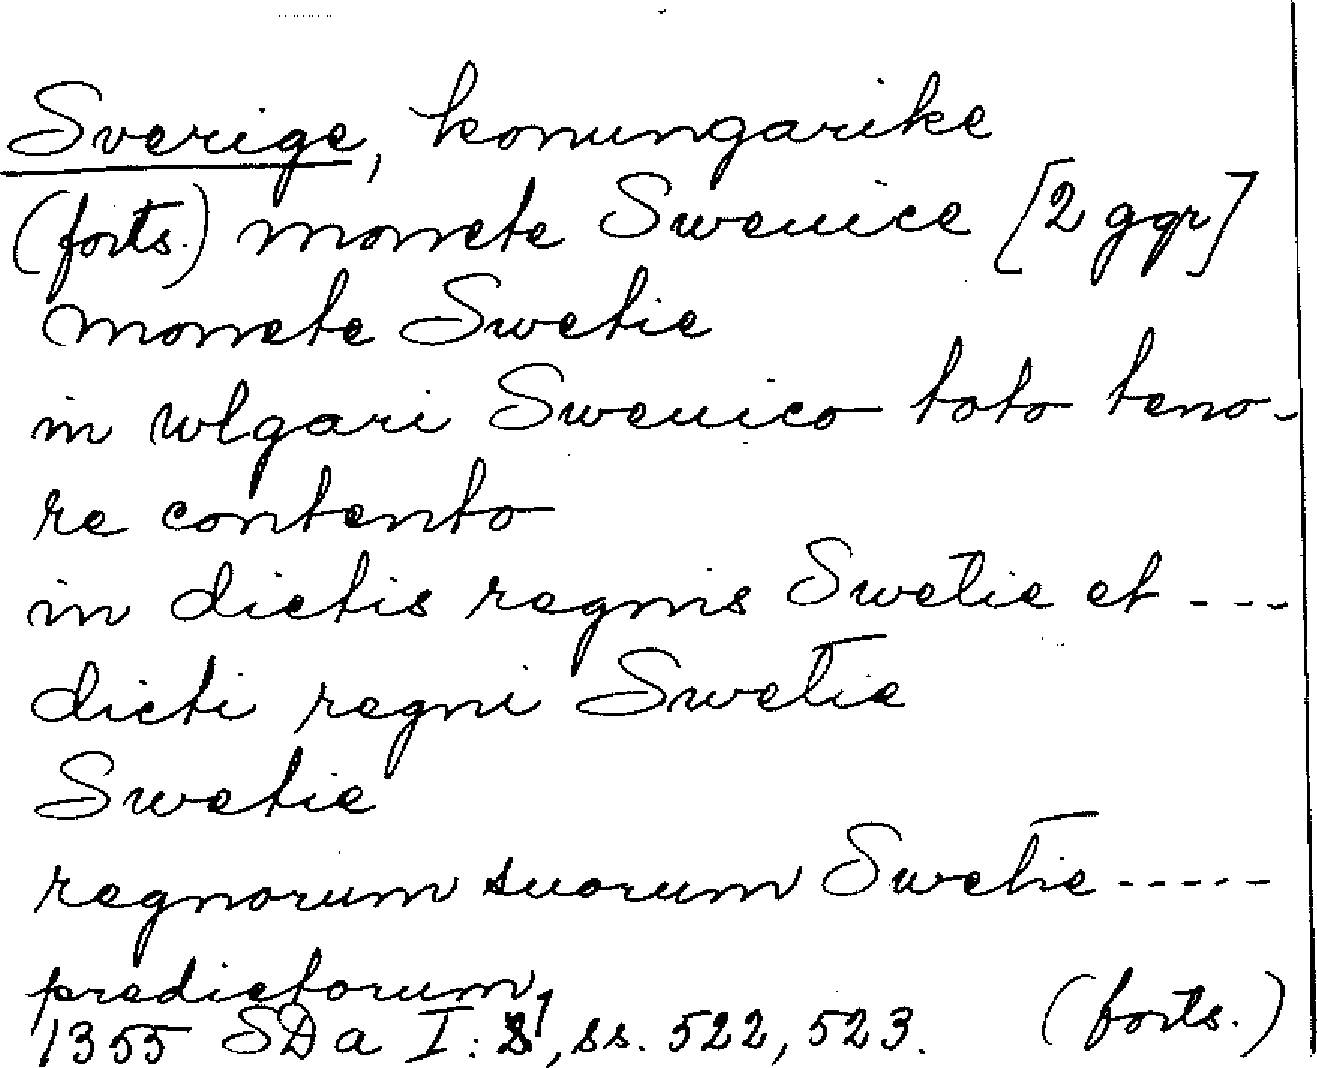 Sverige, konungarike
(forts.) monete Swenice [2 ggr]
monete Swetie
in wlgari Swenico toto teno-
re contento
in dictis regnis Swetie et ---
dicti regni Swetie
Swetie
regnorum suorum Swetie -----
predictorum
1355 SDa I:1, ss. 522, 523. (forts.)